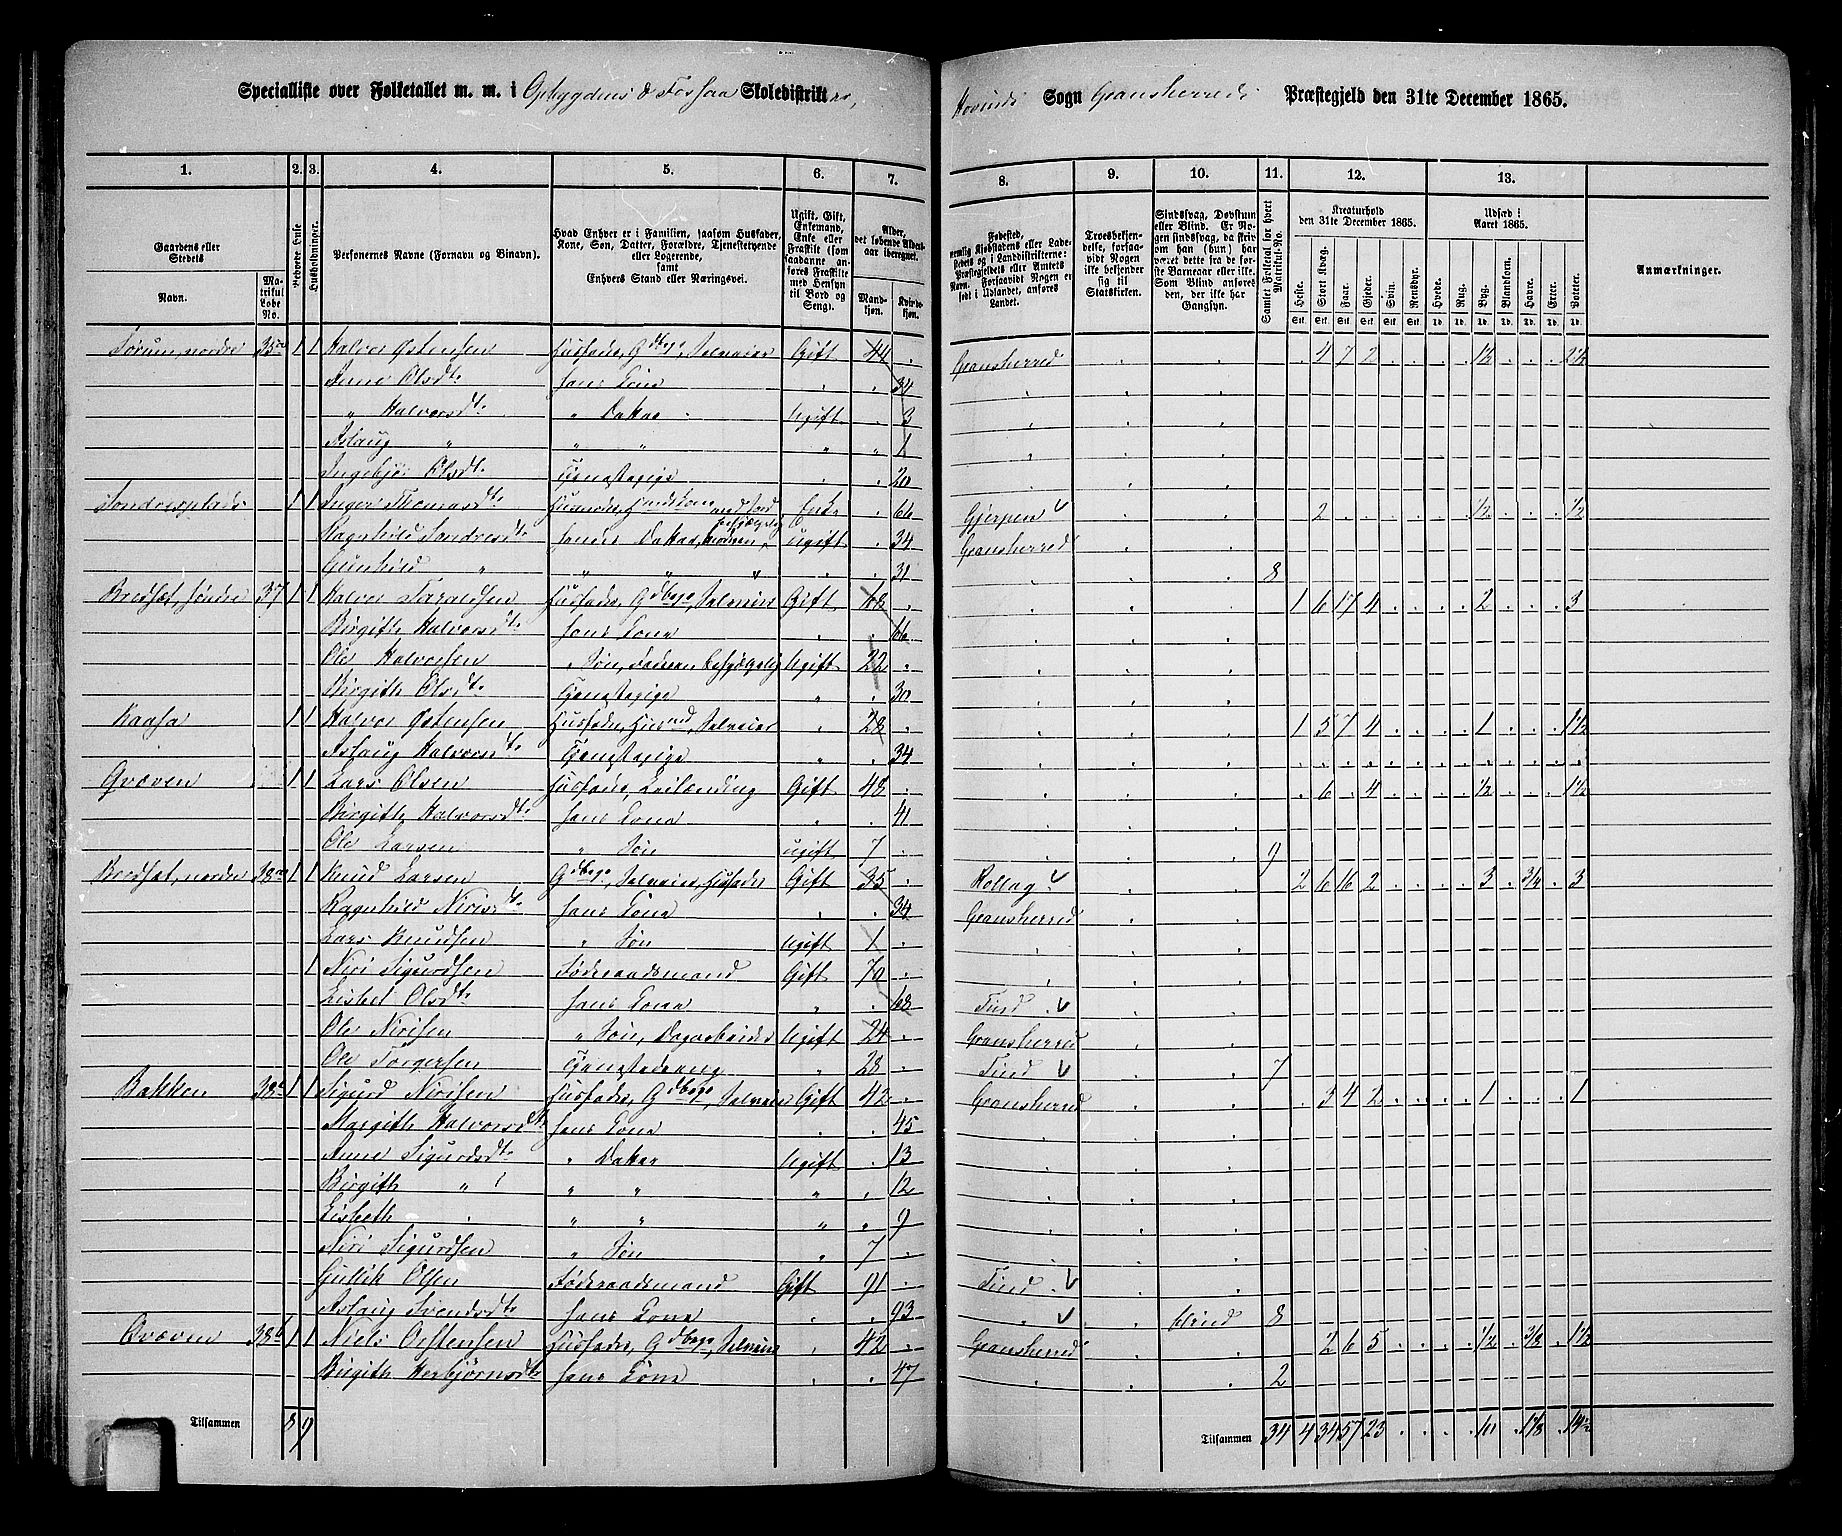 Specialliste over Folketallet m. m. i Opbygdens & Fossaa Skoledistrikter, Hovinds Sogn Gransherreds Præstegjeld den 31te December 1865.
1. 2. 3. 4. 5. 6. 7. 8. 9. 10. 11. 12. 13.
Gaardens eller Stedets Navn. Matrikul Løbe No. Beboede Huse Husholdninger. Personernes Navne (Fornavn og Binavn). Hvad Enhver er i Familien, saasom Husfader, Kone, Søn, Datter, Forældre, Tjenestetyende eller Logerende, samt Enhvers Stand eller Næringsvei. Ugift, Gift, Enkemand, Enke eller Fraskilt (som saadanne anføres Fraskilte med Hensyn til Bord og Seng). Alder, det løbende Aldersaar iberegnet. Mandkjøn. Kvindekjøn. Anmærkninger.
Kreaturhold den 31te December 1865. Heste. Stort Kvæg. Faar. Gjeder. Svin. Rensdyr. Udsæd i Aaret 1865. Hvede. Rug. Byg. Blandkorn. Havre. Erter. Poteter.
Sørum, nordre 35 1 1 Halvor Østensen Husfader, Gdbrgr, Selveier Gift 44 . Gransherred . . . 4 7 2 . . . . 1½ . . . 2½
Anne Olsdtr hans Kone . . 34
„ Halvorsdtr „ Datter Ugift . 3
Aslaug „ „ „ „ „ 1
Ingebjør Olsdtr Tjenestepige . . 20
Sondresplads 1 1 Inger Thomasdtr Enke . 66 Gjerpen . 2 . . . . . . ½ . . . ½
Ragnhild Sondresdtr hendes Datter, Ugift . 34 Gransherred
Gunhild „ „ „ . . 31 8
Bredset, søndre 37 1 1 Halvor Taraldsen Husfader, Gdbrgr, Selveier Gift 68 . 1 6 17 4 . . . . 2 . . . 3
Birgith Halvorsdtr hans Kone . . 66
Ole Halvorsen „ Søn, Faderen behjælpelig Ugift 22 .
Birgith Olsdtr Tjenestepige „ . 30
Kaasa 1 1 Halvor Østensen Husfader, Husmd, Selveier . 28 . 1 5 7 4 . . . . 1 . . . 1½
Aslaug Halvorsdtr Tjenestepige . . 34
Qværen 1 1 Lars Olsen Husfader, Leilænding Gift 48 . . 6 . 4 . . . . ½ . . . 1½
Birgith Halvorsdtr hans Kone . . 41
Ole Larsen „ Søn ugift 7 . 9
Bredset, nordre 38 1 1 Knud Larsen Gdbrgr, Selveier, Husfader Gift 35 . Rollag 2 6 16 2 . . . . 3 . 3/4 . 3
Ragnhild Nirisdtr hans Kone . . 34 Gransherred
Lars Knudsen „ Søn Ugift 1 .
1 Niri Sigurdsen Føderaadsmand Gift 70 .
Lisbet Olsdtr hans Kone „ . 68 Tind
Ole Nirisen „ Søn, Dagarbeider Ugift 24 . Gransherred
Ole Torgersen Tjenestedreng „ 28 . Tind 7
Bakken 38 1 1 Sigurd Nirisen Husfader, Gdbrgr, Selveier Gift 42 . Gransherred . 3 4 2 . . . . 1 . . . 1
Margith Halvorsdtr hans Kone . . 45
Anne Sigurdsdtr „ Datter Ugift . 13
Birgith „ „ „ „ . 12
Lisbeth . „ „ „ „ 9
Niri Sigurdsen „ Søn „ 7 .
Gullik Olsen Føderaadsmand Gift 91 . Tind
Aslaug Svendsdtr hans Kone . . 93 . blind 8
Qværen 38b 1 1 Niels Østensen Husfader, Gdbrgr, Selveier . 42 . Gransherred . 2 6 5 . . . . ½ . 3/8 . 1½
Birgith Herbjørnsdtr hans Kone . . 47 2
Tilsammen 8 9 Tilsammen 34 4 34 57 23 . . . . 10½ . 1 1/8 . 14½